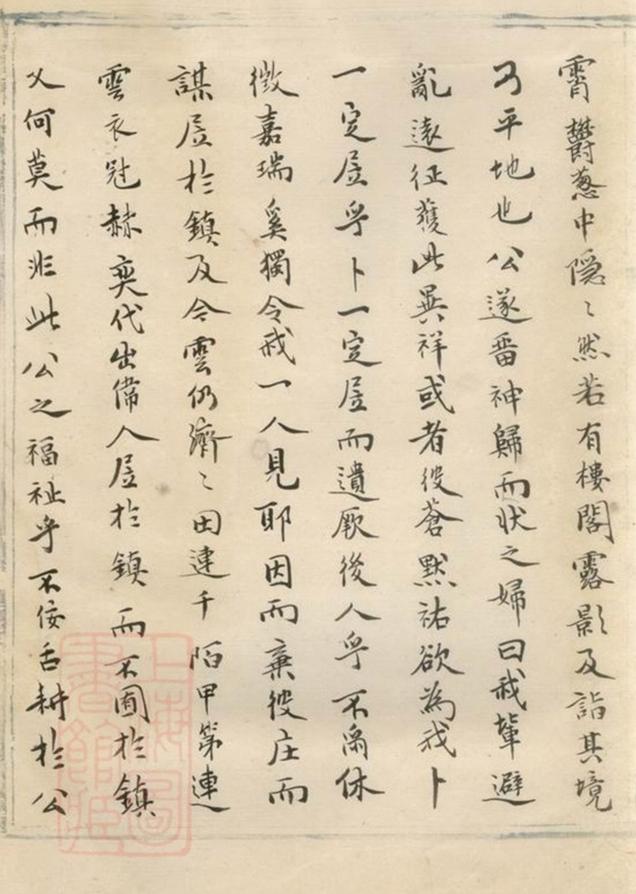 霄鬱葱中隱〻然若有樓閣露影及詣其境
乃平地也公遂畱神歸而狀之婦曰我輩避
亂遠征獲此異祥或者彼蒼默祐欲為我卜
一定居乎卜一定居而遺厥後人乎不爾休
徵嘉瑞奚獨令我一人見耶因而棄彼庄而
謀居於鎮及今雲仍濟〻田連千陌甲第連
雲衣冠赫奕代出偉人居於鎮而不囿於鎮
又何莫而非此公之福祉乎不佞舌耕於公
上海圖書館藏